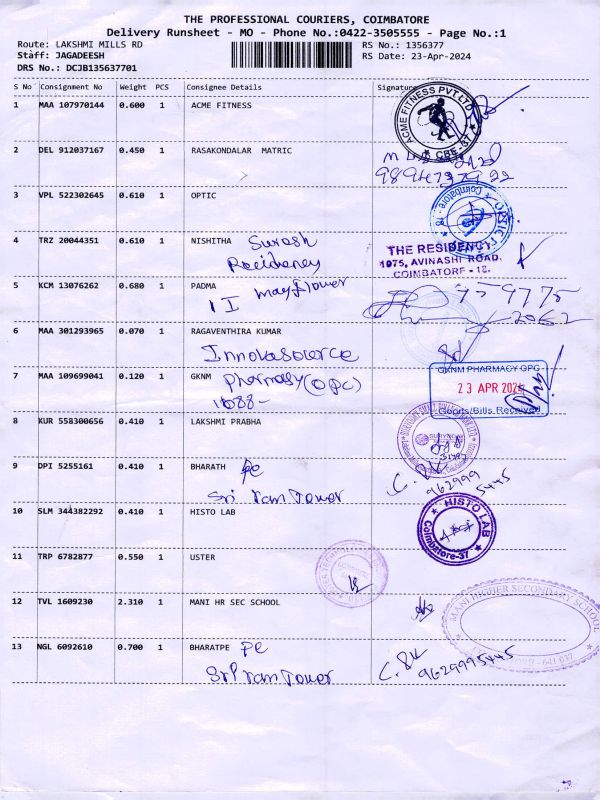 THE PROFESSIONAL COURIERS, COIMBATORE
Delivery Runsheet - MO - Phone No.:0422-3505555 - Page No.:1
Route: LAKSHMI MILLS RD RS No.: 1356377
Staff: JAGADEESH RS Date: 23-Apr-2024
DRS No.: DCJB135637701
S No Consignment No Weight PCS Consignee Details Signature
1 MAA 107970144 0.600 1 ACME FITNESS
ACME FITNESS PVT LTD
CBE-37
2 DEL 912037167 0.450 1 RASAKONDALAR MATRIC
3 VPL 522302645 0.610 1 OPTIC
Coimbatore - 18
4 TRZ 20044351 0.610 1 NISHITHA Suresh
Residency
THE RESIDENCY
1075, AVINASHI ROAD,
COIMBATORE - 18.
5 KCM 13076262 0.680 1 PADMA
mayflower
6 MAA 301293965 0.070 1 RAGAVENTHIRA KUMAR
Innovasource
7 MAA 109699041 0.120 1 GKNM pharmasy (OPC)
GKNM PHARMACY OPC
23 APR 2024
Goods/Bills Received
8 KUR 558300656 0.410 1 LAKSHMI PRABHA
9 DPI 5255161 0.410 1 BHARATH pe
Sri Ram Tower
9629995445
10 SLM 344382292 0.410 1 HISTO LAB
HISTO LAB
Coimbatore-37
11 TRP 6782877 0.550 1 USTER
12 TVL 1609230 2.310 1 MANI HR SEC SCHOOL
MANI HIGHER SECONDARY SCHOOL
641 037
13 NGL 6092610 0.700 1 BHARATPE pe
Sri Ram Tower
9629995445